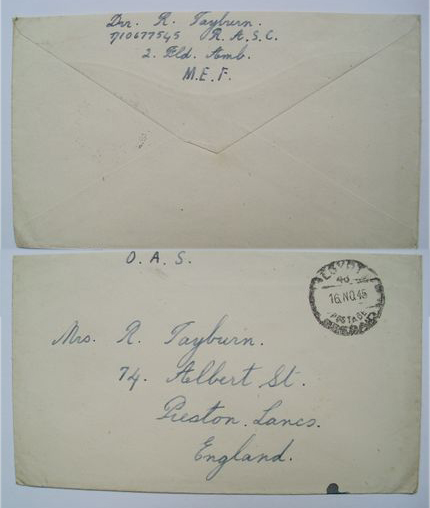 Dvr. R. Tayburn.
T/10677545 R.A.S.C.
2. Fld. Amb.
M.E.F.
O.A.S.
EGYPT
46
16.NO.45
POSTAGE
PREPAID
Mrs. R. Tayburn.
74. Albert St.
Preston. Lancs.
England.